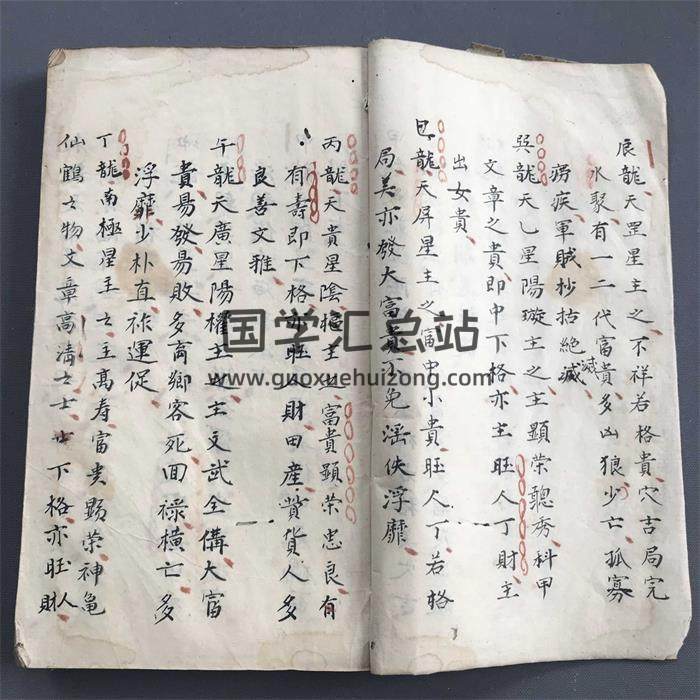 辰龍天罡星主之不祥若格貴穴吉局完
水聚有一二代富貴多凶狼少亡孤寡
癆疾軍賊抄拈絶滅
滅
巽龍天乙星陽璇主之主顯荣聰秀科甲
文章之貴即中下格亦主旺人丁財主
出女貴
巳龍天屏星主之富中小貴旺人丁若格
局美亦發大富貴不免滛佚浮靡
丙龍天貴星陰樞主之富貴顯荣忠良有
有壽即下格亦旺人財田產貲貨人多
良善文雅
午龍天廣星陽權主之主文武全備大富
貴昜發昜敗多商鄉客死回禄橫亡多
浮靡少朴直祚運促
丁龍南極星主之主髙寿富贵顯荣神龜
仙鶴之物文章高清之士中下格亦旺人
財
国学汇总站
www.guoxuehuizong.com